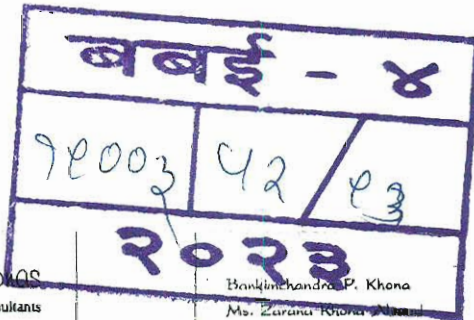 बबई - ४
१९००३ ५२ / ९३
२०२३
Bankimchandra P. Khona
Ms. Zarana Khona